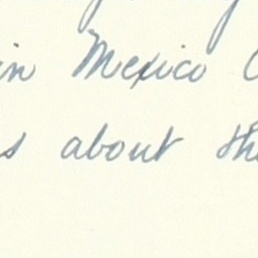 in Mexico
about the